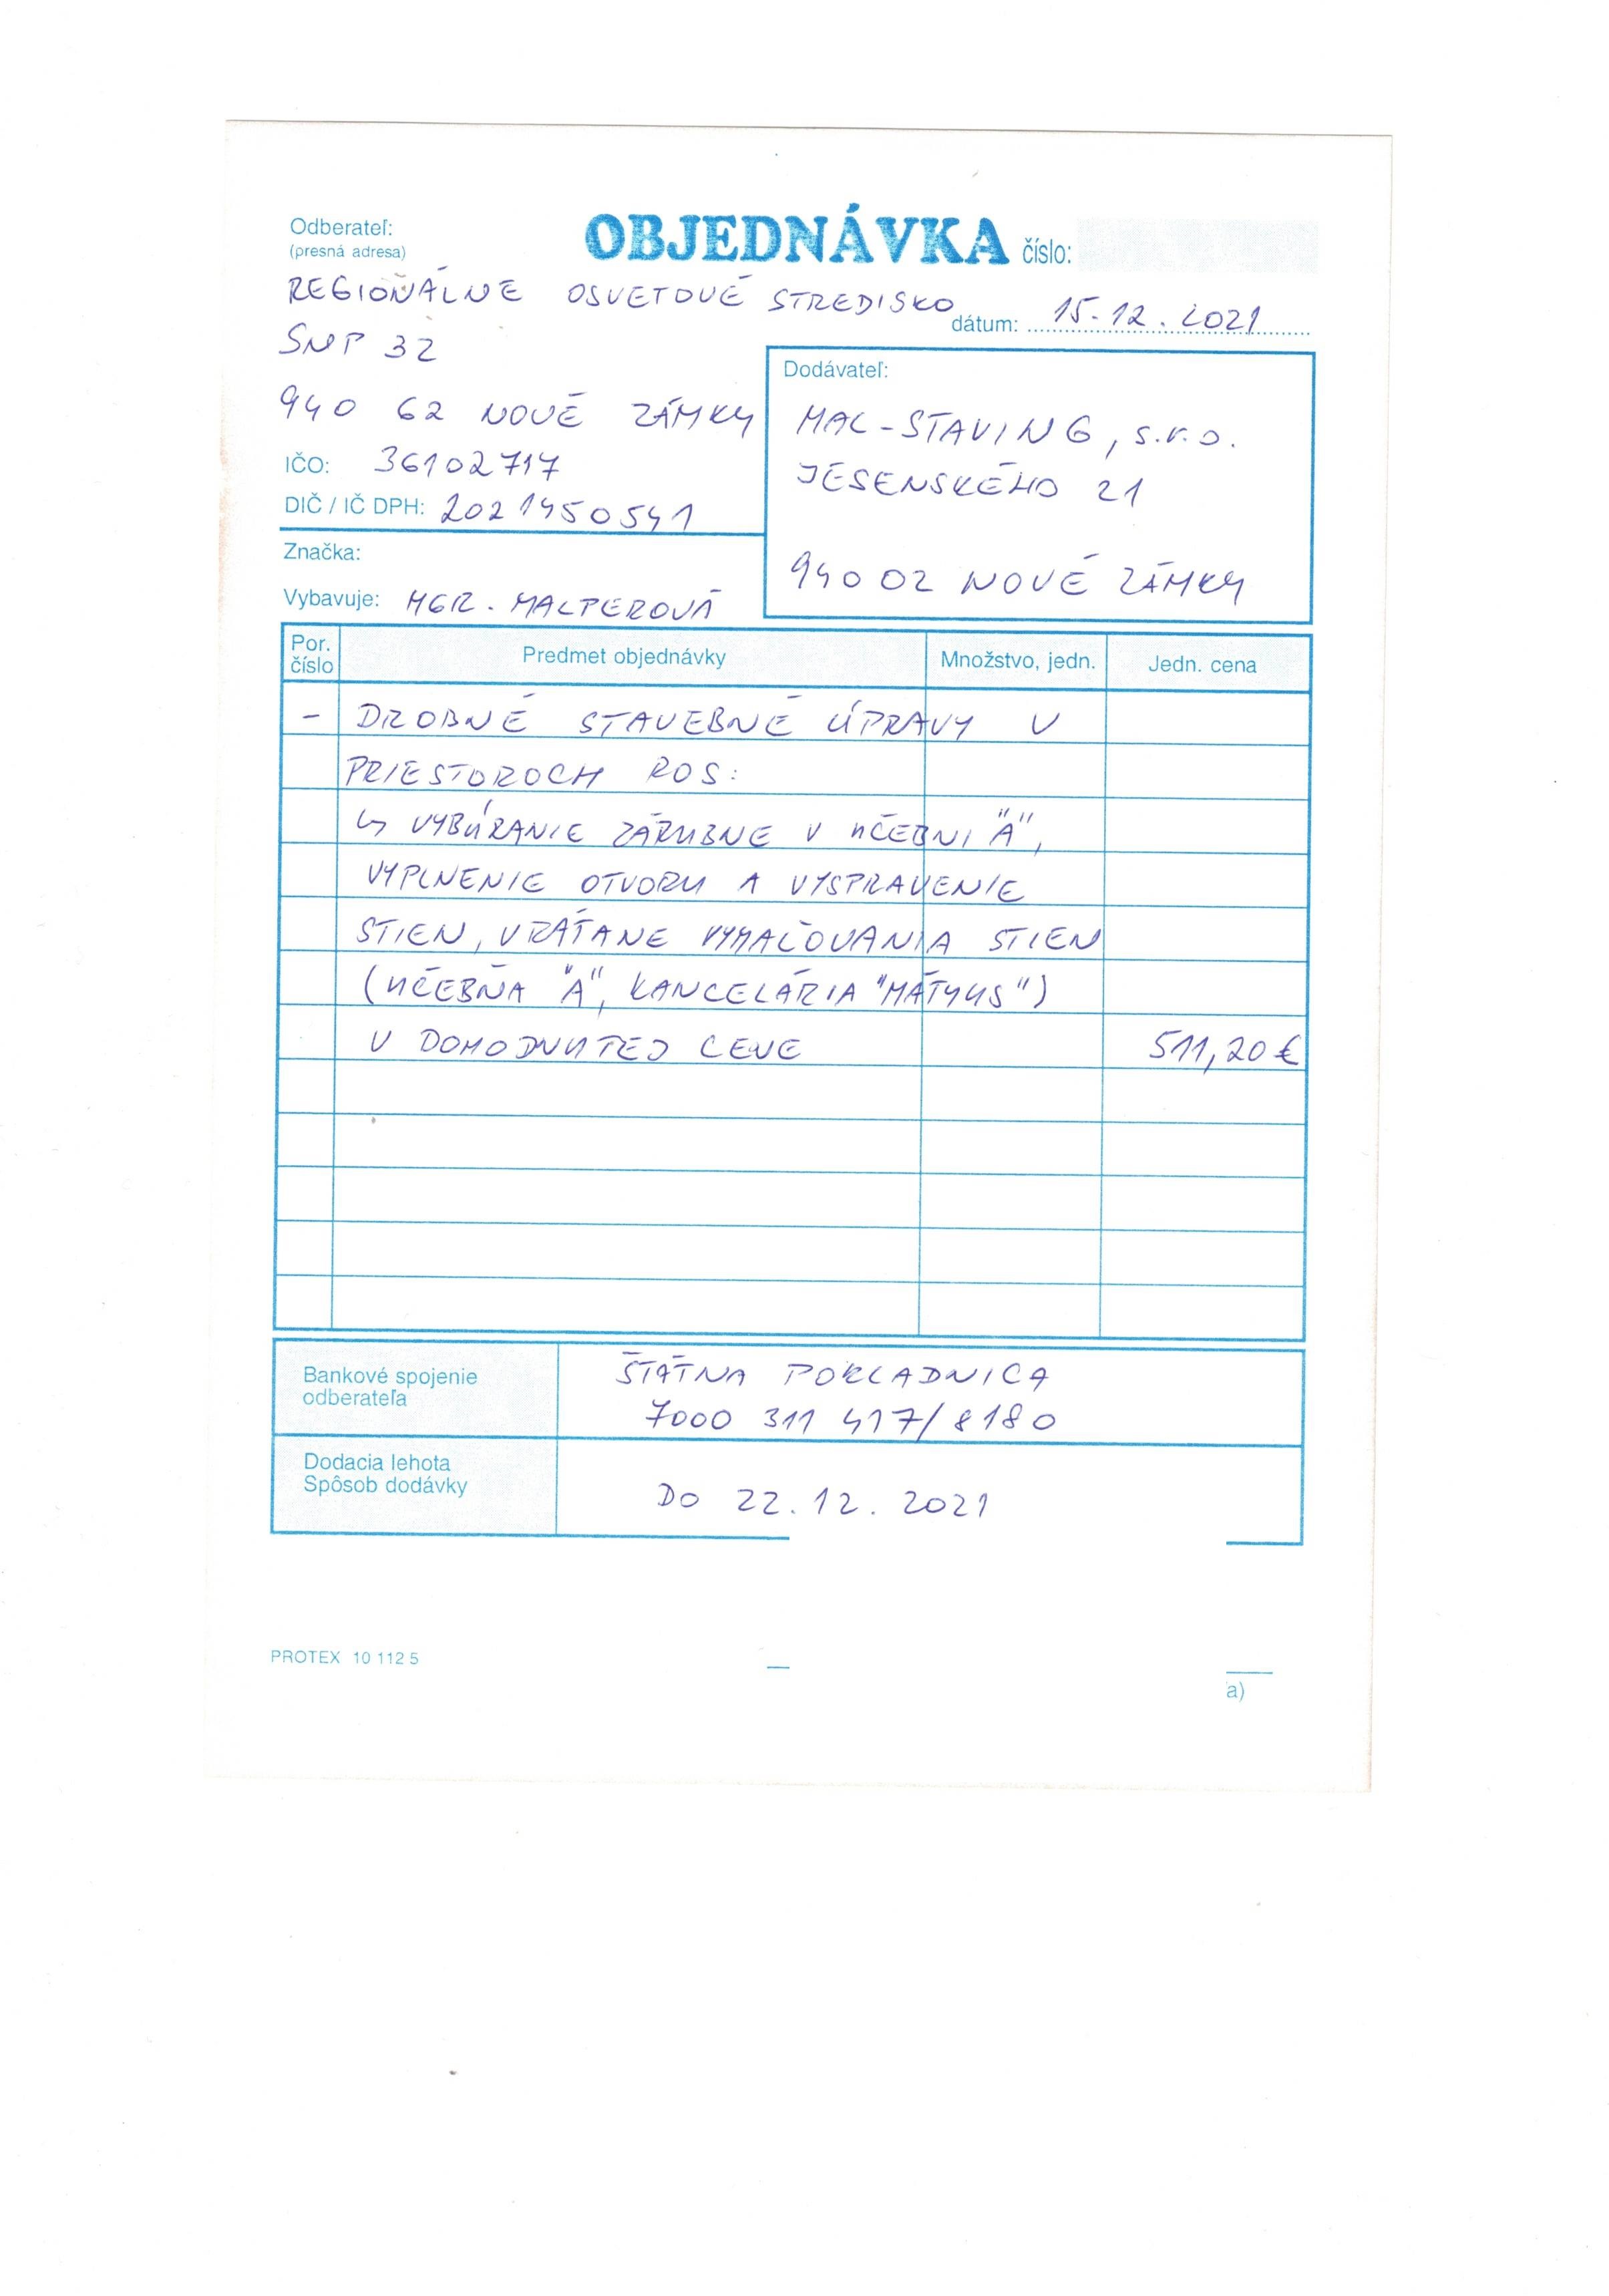 Odberateľ:
(presná adresa)
OBJEDNÁVKA číslo:
REGIONÁLNE OSVETOVÉ STREDISKO
dátum: 15.12.2021
SNP 32
940 62 NOVÉ ZÁMKY
IČO: 36102717
DIČ / IČ DPH: 2021450541
Značka:
Vybavuje: MGR. MALPEROVÁ
Dodávateľ:
MAC-STAVING, s.r.o.
JESENSKÉHO 21
940 02 NOVÉ ZÁMKY
Por. číslo
Predmet objednávky
Množstvo, jedn.
Jedn. cena
- DROBNÉ STAVEBNÉ ÚPRAVY V
PRIESTOROCH ROS:
↳ VYBÚRANIE ZÁRUBNE V UČEBNI "A",
VYPLNENIE OTVORU A VYSPRAVENIE
STIEN, VRÁTANE VYMAĽOVANIA STIEN
(UČEBŇA "A", KANCELÁRIA "MÁTYUS")
V DOHODNUTEJ CENE 511,20 €
Bankové spojenie
odberateľa
ŠTÁTNA POKLADNICA
7000 311 417/8180
Dodacia lehota
Spôsob dodávky
DO 22.12.2021
PROTEX 10 112 5
a)